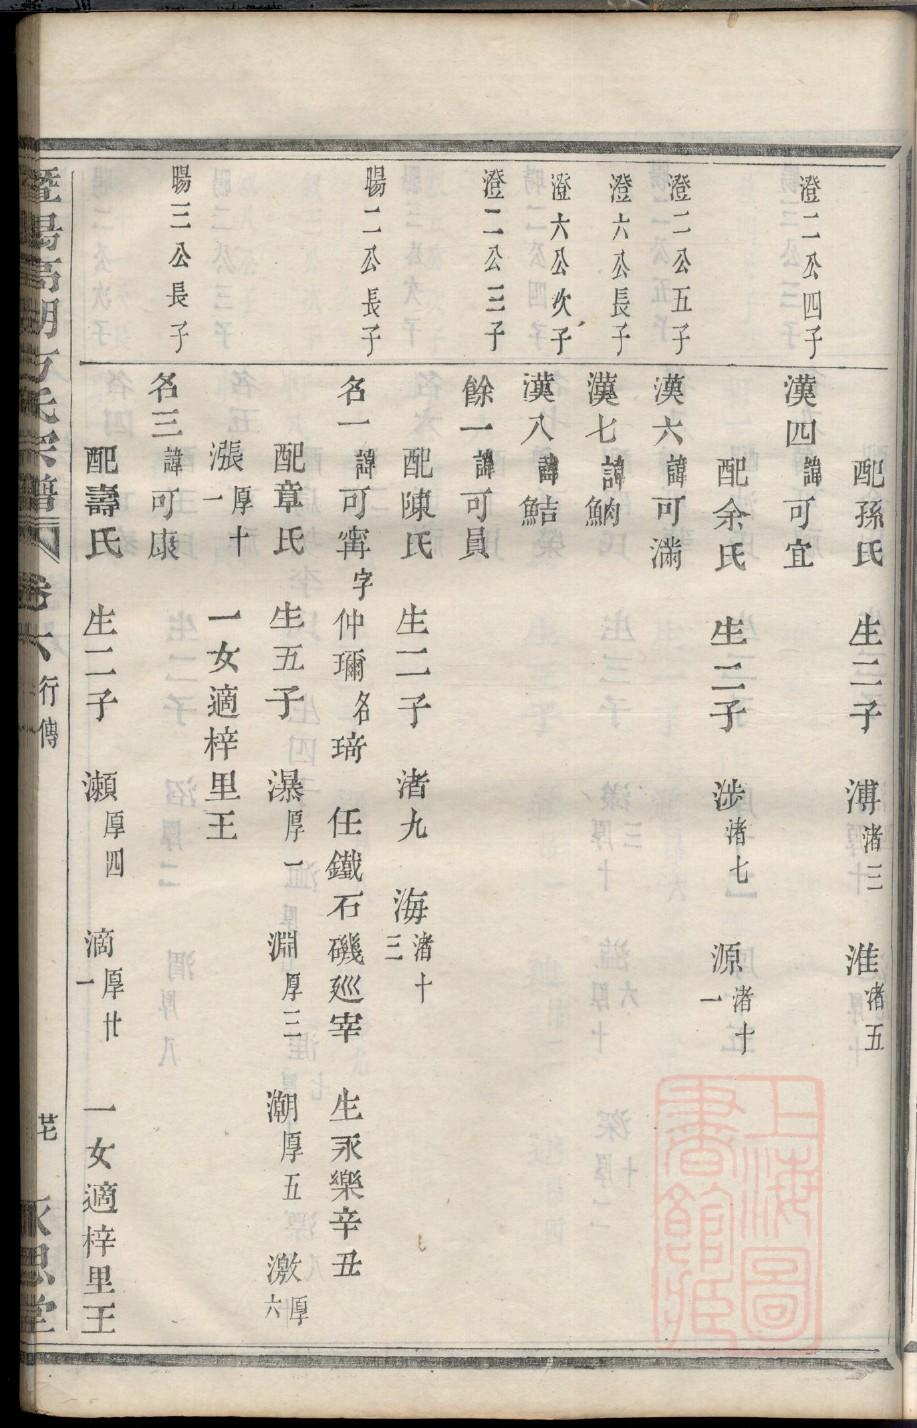 配孫氏 生二子 溥渚三 淮渚五
澄二公四子 漢四諱可宜
配余氏 生二子 涉渚七 源渚十一
澄二公五子 漢六諱可滿
澄六公長子 漢七諱鮹
澄六公次子 漢八諱鮚
澄二公三子 餘一諱可員
配陳氏 生二子 渚九 海渚十三
暘二公長子 名一諱可寗字仲璊名琦 任鐵石磯廵宰 生永樂辛丑
配章氏 生五子 瀑厚一 淵厚三 潮厚五 激厚六
漲厚十一 一女適梓里王
暘三公長子 名三諱可康
配壽氏 生二子 瀬厚四 滴厚廿一 一女適梓里王
暨陽高湖方氏宗譜 卷六 行傳 芘 永思堂
上海圖書館藏